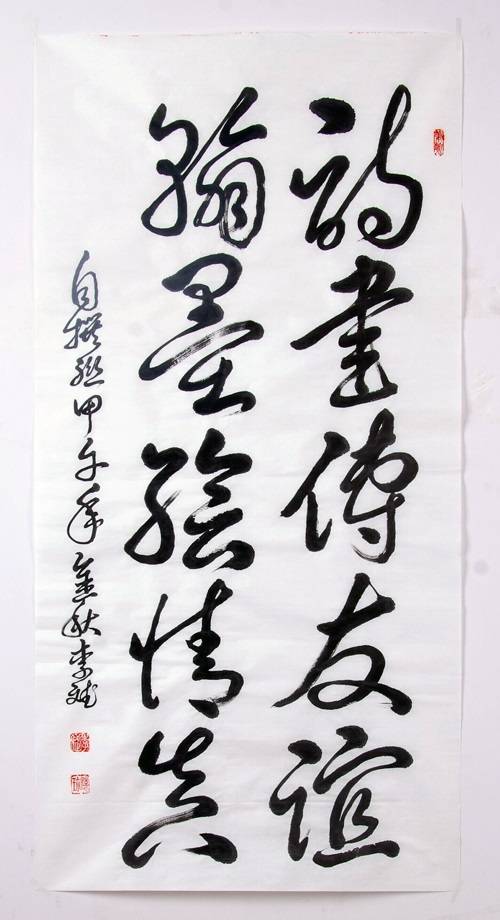 詩書傳友誼
翰墨繪情真
自撰聯甲午年金秋李斌